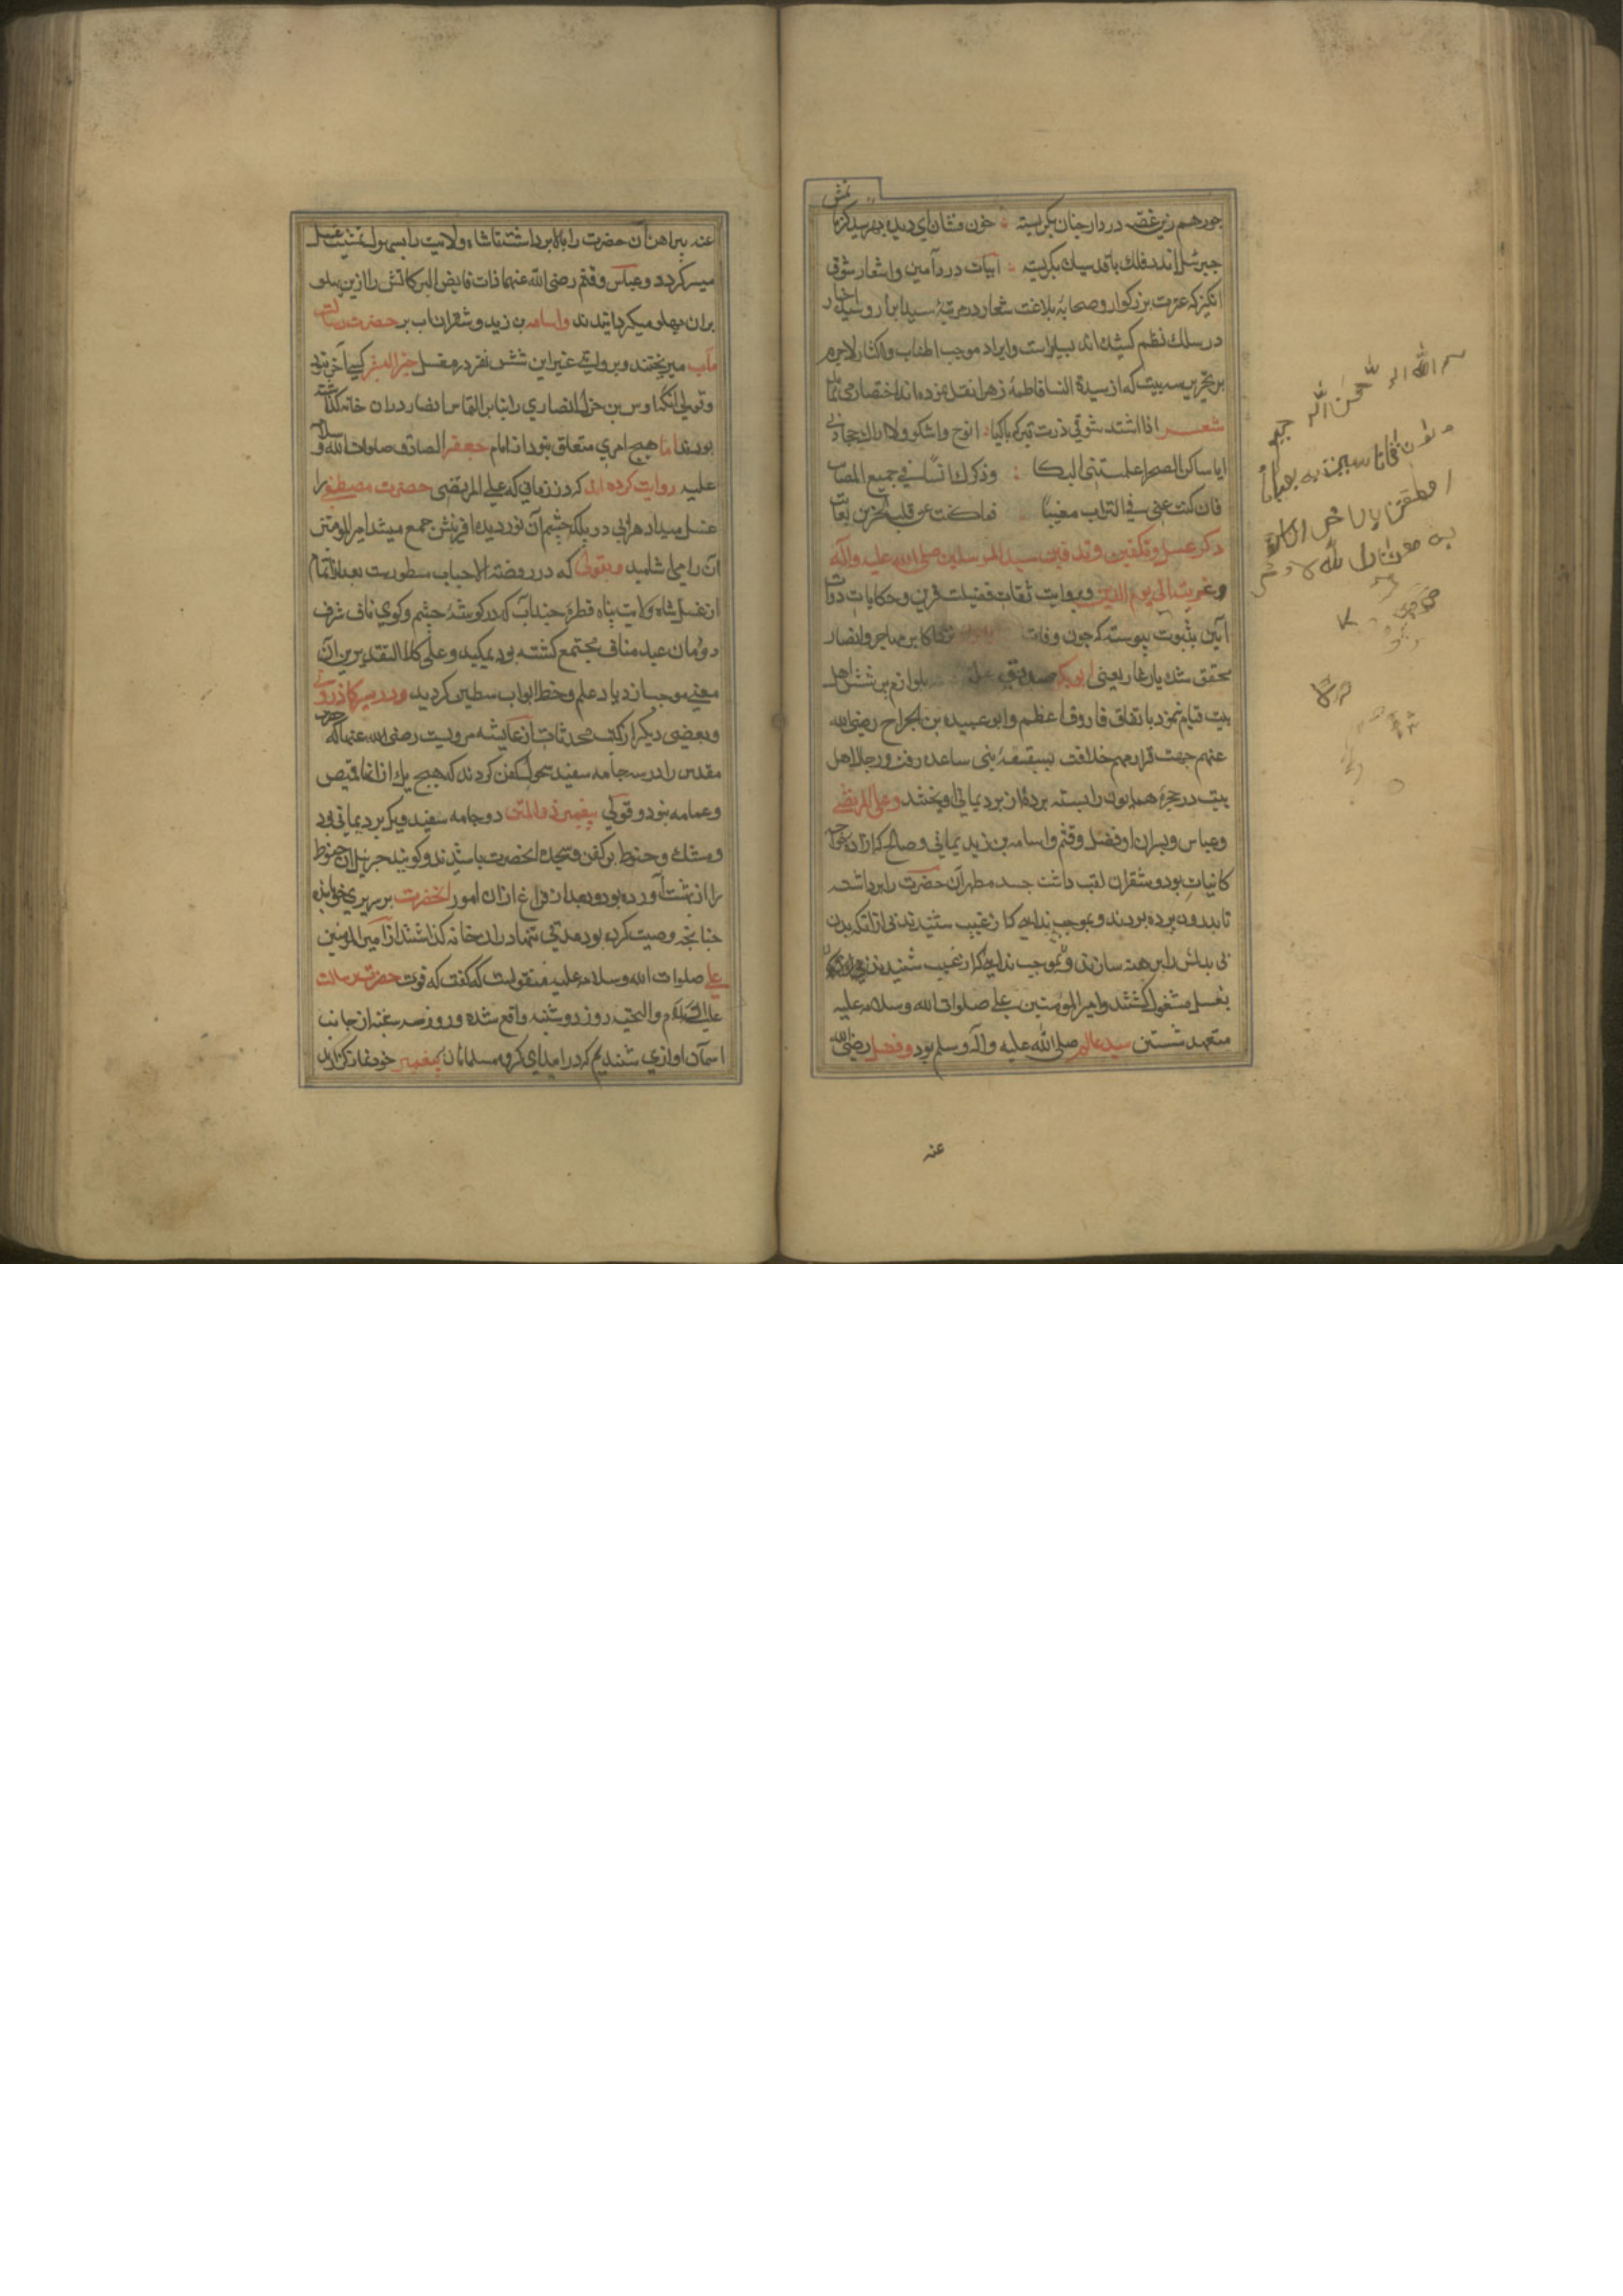 نش
حور هم زین غصه در دار جنان بگریسته خون فشان ای دیده بهر سید کز ما
جبرئیل اندر فلک با قدسیان بگریسته ابیات درد آمیز و اشعار شوق
انکیز که عترت بزرکوار و صحابهٔ بلاغت شعار در مرثیهٔ سید ابرار و سید اخیار
در سلک نظم کشیده‌اند بسیار است و ایراد موجب اطناب و اکثار لاجرم
بر تحریر سه بیت که از سیدة النسا فاطمهٔ زهرا نقل کرده‌اند اختصار می نماید
شعر اذا اشتد شوقی زرت قبرک باکیا انوح و اشکو و لا اراک مجاوبی
ایا ساکن الصحرا علمتنی البکا و ذکرک انسانی جمیع المصایب
فان کنت عنی فی التراب مغیبا فما کنت عن قلب الحزین بغایب
ذکر غسل و تکفین و تدفین سید المرسلین صلی الله علیه وآله
وعترته الی یوم الدین و بروایت ثقات فضیلت قرین و حکایات روات
آیین بثبوت پیوسته که چون وفات اکابر مهاجر و انصار
محقق شد یار غار یعنی ابوبکر صدیق بلوازم پرسش اهل
بیت قیام نمود باتفاق فاروق اعظم و ابو عبیده بن الجراح رضی الله
عنهم جهت قرار مهم خلافت بسقیفهٔ بنی ساعده رفت و رجال اهل
بیت در حجرهٔ همایون را بسته پردهٔ از برد یمانی آویختند و علی المرتضی
وعباس و پسران او فضل و قثم و اسامه بن زید و صالح که آزاد خواجه
کاینات بود و شقران لقب داشت جسد مطهر آن حضرت را برداشته
تا بدرون برده بودند و بموجب ندایی که از غیب شنیدند بی ازانکه بدن
بی بدلش را برهنه سازند و بموجب ندایی که از غیب شنیدند
بغسل مشغول کشتند و امیر المومنین علی صلوات الله و سلامه علیه
متعهد شستن سید عالم صلی الله علیه وآله وسلم بود و فضل رضی الله
عنه
عنه پیراهن آن حضرت را بالا برداشته تا شاه ولایت را بسهولت غسل
میسر کردد و عباس و قثم رضی الله عنهما ذات فایض البرکاتش را ازین پهلو
بران پهلو میکردانیدند و اسامه بن زید و شقران آب بر حضرت رسالت
مآب میریختند و بروایتی غیر این شش نفر در مغسل خیر البشر کسی آخر نبود
و قولی آنکه اوس بن خولی انصاری را بنابر التماس انصار دران خانه کذاشته
بودند اما هیچ امری متعلق نبود از امام جعفر الصادق صلوات الله و سلامه
علیه روایت کرده‌اند که در زمانی که علی المرتضی حضرت مصطفی را
غسل میداد هر آبی در پلکهٔ چشم آن نور دیدهٔ آفرینش جمع میشد امیر المومنین
آن را می آشامید و بقولی که در روضة الاحباب مسطورست بعد از اتمام
از غسل شاه ولایت پناه قطرهٔ چند آب که در کوشهٔ چشم و کوی ناف شرف
دودمان عبد مناف مجتمع کشته بود بمکید و علی کلا التقدیرین آن
معنی موجب ازدیاد علم و حفظ کردید و در سیر کازرونی
و بعضی دیکر از کتب محدثات از عایشه مرویست رضی الله عنها که
مقدس را در سه جامه سفید سحولی کفن کردند که هیچ یک ازانها قمیص
و عمامه نبود و قولی پیغمبر ذو المنن دو جامه سفید و یک برد یمانی بود
و مشک و حنوط بر کفن و سجدهٔ آنحضرت پاشیدند و کویند جبرئیل آن حنوط
را از بهشت آورده بود و بعد از فراغ ازان امور آنحضرت بر سریری خوابیده
چنانچه وصیت کرده بود مدتی تنها دران خانه کذاشتند از امیر المومنین
علی صلوات الله و سلامه علیه منقولست که کفت که فوت حضرت رسالت
علیه السلام والتحیه روز دوشنبه واقع شده و روز سه شنبه از جانب
آسمان آوازی شنیدیم که درآیید ای کروه مسلمانان بر پیغمبر خود نماز کزارید